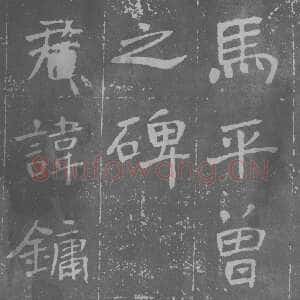 馬平曾
之碑
君諱鏞
shufawang.CN